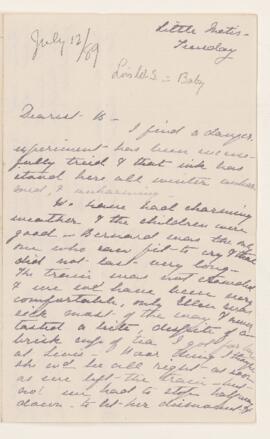 July 12/89
Little Metis -
Tuesday
Lois & S = Baby
Dearest B -
I find a danger
experiment has been success-
fully tried & that ink has
stood here all winter unhar-
med, & unharming -
We have had charming
weather & the children were
good - Bernard was the only
one who saw fit to cry & that
did not last very long -
The train was not crowded
& we wd have been very
comfortable, only Ellen was
sick most of the way & never
tasted a bite, despite of a
brisk cup of tea I got for her
at Levis - Poor thing I thought
she wd be all right as soon
as we left the train - but
no! we had to stop half way
down - to let her dismount &